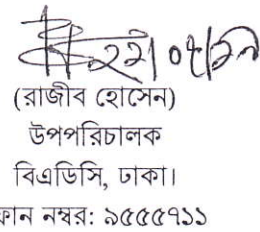 ২২।০৫।১৯
(রাজীব হোসেন)
উপপরিচালক
বিএডিসি, ঢাকা।
ফোন নম্বর: ৯৫৫৫৭১১